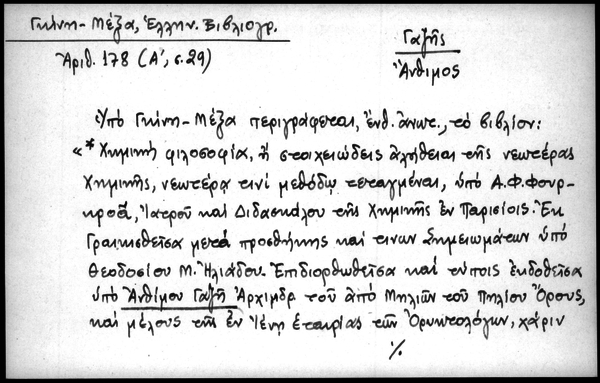 Γκίνη-Μέξα, Ἑλλην. Βιβλιογρ.
Ἀριθ. 178 (Α', σ. 29)
Γαζῆς
Ἄνθιμος
Ὑπὸ Γκίνη-Μέξα περιγράφεται, ἔνθ. ἄνωτ., τὸ βιβλίον:
«* Χημικὴ φιλοσοφία, ἢ στοιχειώδεις ἀλήθειαι τῆς νεωτέρας
Χημικῆς, νεωτέρᾳ τινὶ μεθόδῳ τεταγμέναι, ὑπὸ Α.Φ.Φουρ-
κροᾶ, Ἰατροῦ καὶ Διδασκάλου τῆς Χημικῆς ἐν Παρισίοις. Ἐκ
Γραικισθεῖσα μετὰ προσθήκης καί τινων Σημειωμάτων ὑπὸ
Θεοδοσίου Μ. Ἠλιάδου. Ἐπιδιορθωθεῖσα καὶ τύποις ἐκδοθεῖσα
ὑπὸ Ἀνθίμου Γαζῆ Ἀρχιμδρ τοῦ ἀπὸ Μηλιῶν τοῦ Πηλίου Ὄρους,
καὶ μέλους τῆς ἐν Ἰένῃ ἑταιρίας τῶν Ὀρυκτολόγων, χάριν
./.